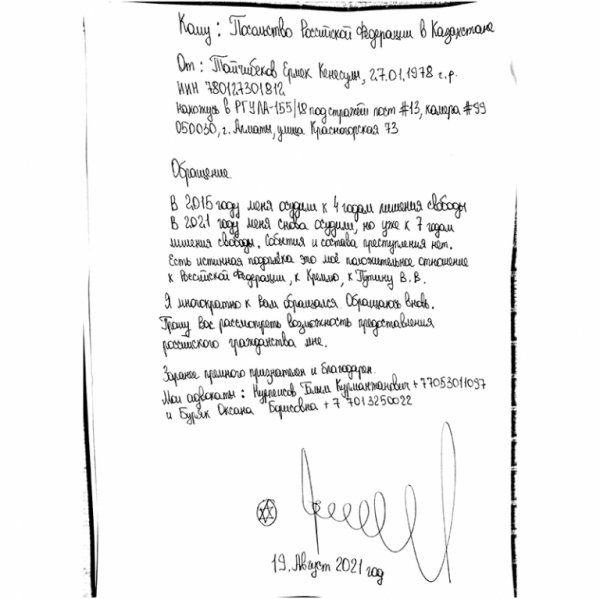 Кому: Посольство Российской Федерации в Казахстане
От: Тайчибеков Ермек Кенесұлы, 27.01.1978 г.р.
ИИН 780127301812
нахожусь в РГУ ЛА-155/18 под стражей пост #13, камера #99
050030, г. Алматы, улица Красногорская 73
Обращение
В 2015 году меня осудили к 4 годам лишения свободы
В 2021 году меня снова осудили, но уже к 7 годам
лишения свободы. События и состава преступления нет.
Есть истинная подоплёка это моё положительное отношение
к Российской Федерации, к Кремлю, к Путину В.В.
Я многократно к Вам обращался. Обращаюсь вновь.
Прошу Вас рассмотреть возможность предоставления
российского гражданства мне.
Заранее премного признателен и благодарен.
Мои адвокаты: Нурпеисов Галым Курмантанович +77053011097
и Буряк Оксана Борисовна +7 7013250022
19. Август 2021 год